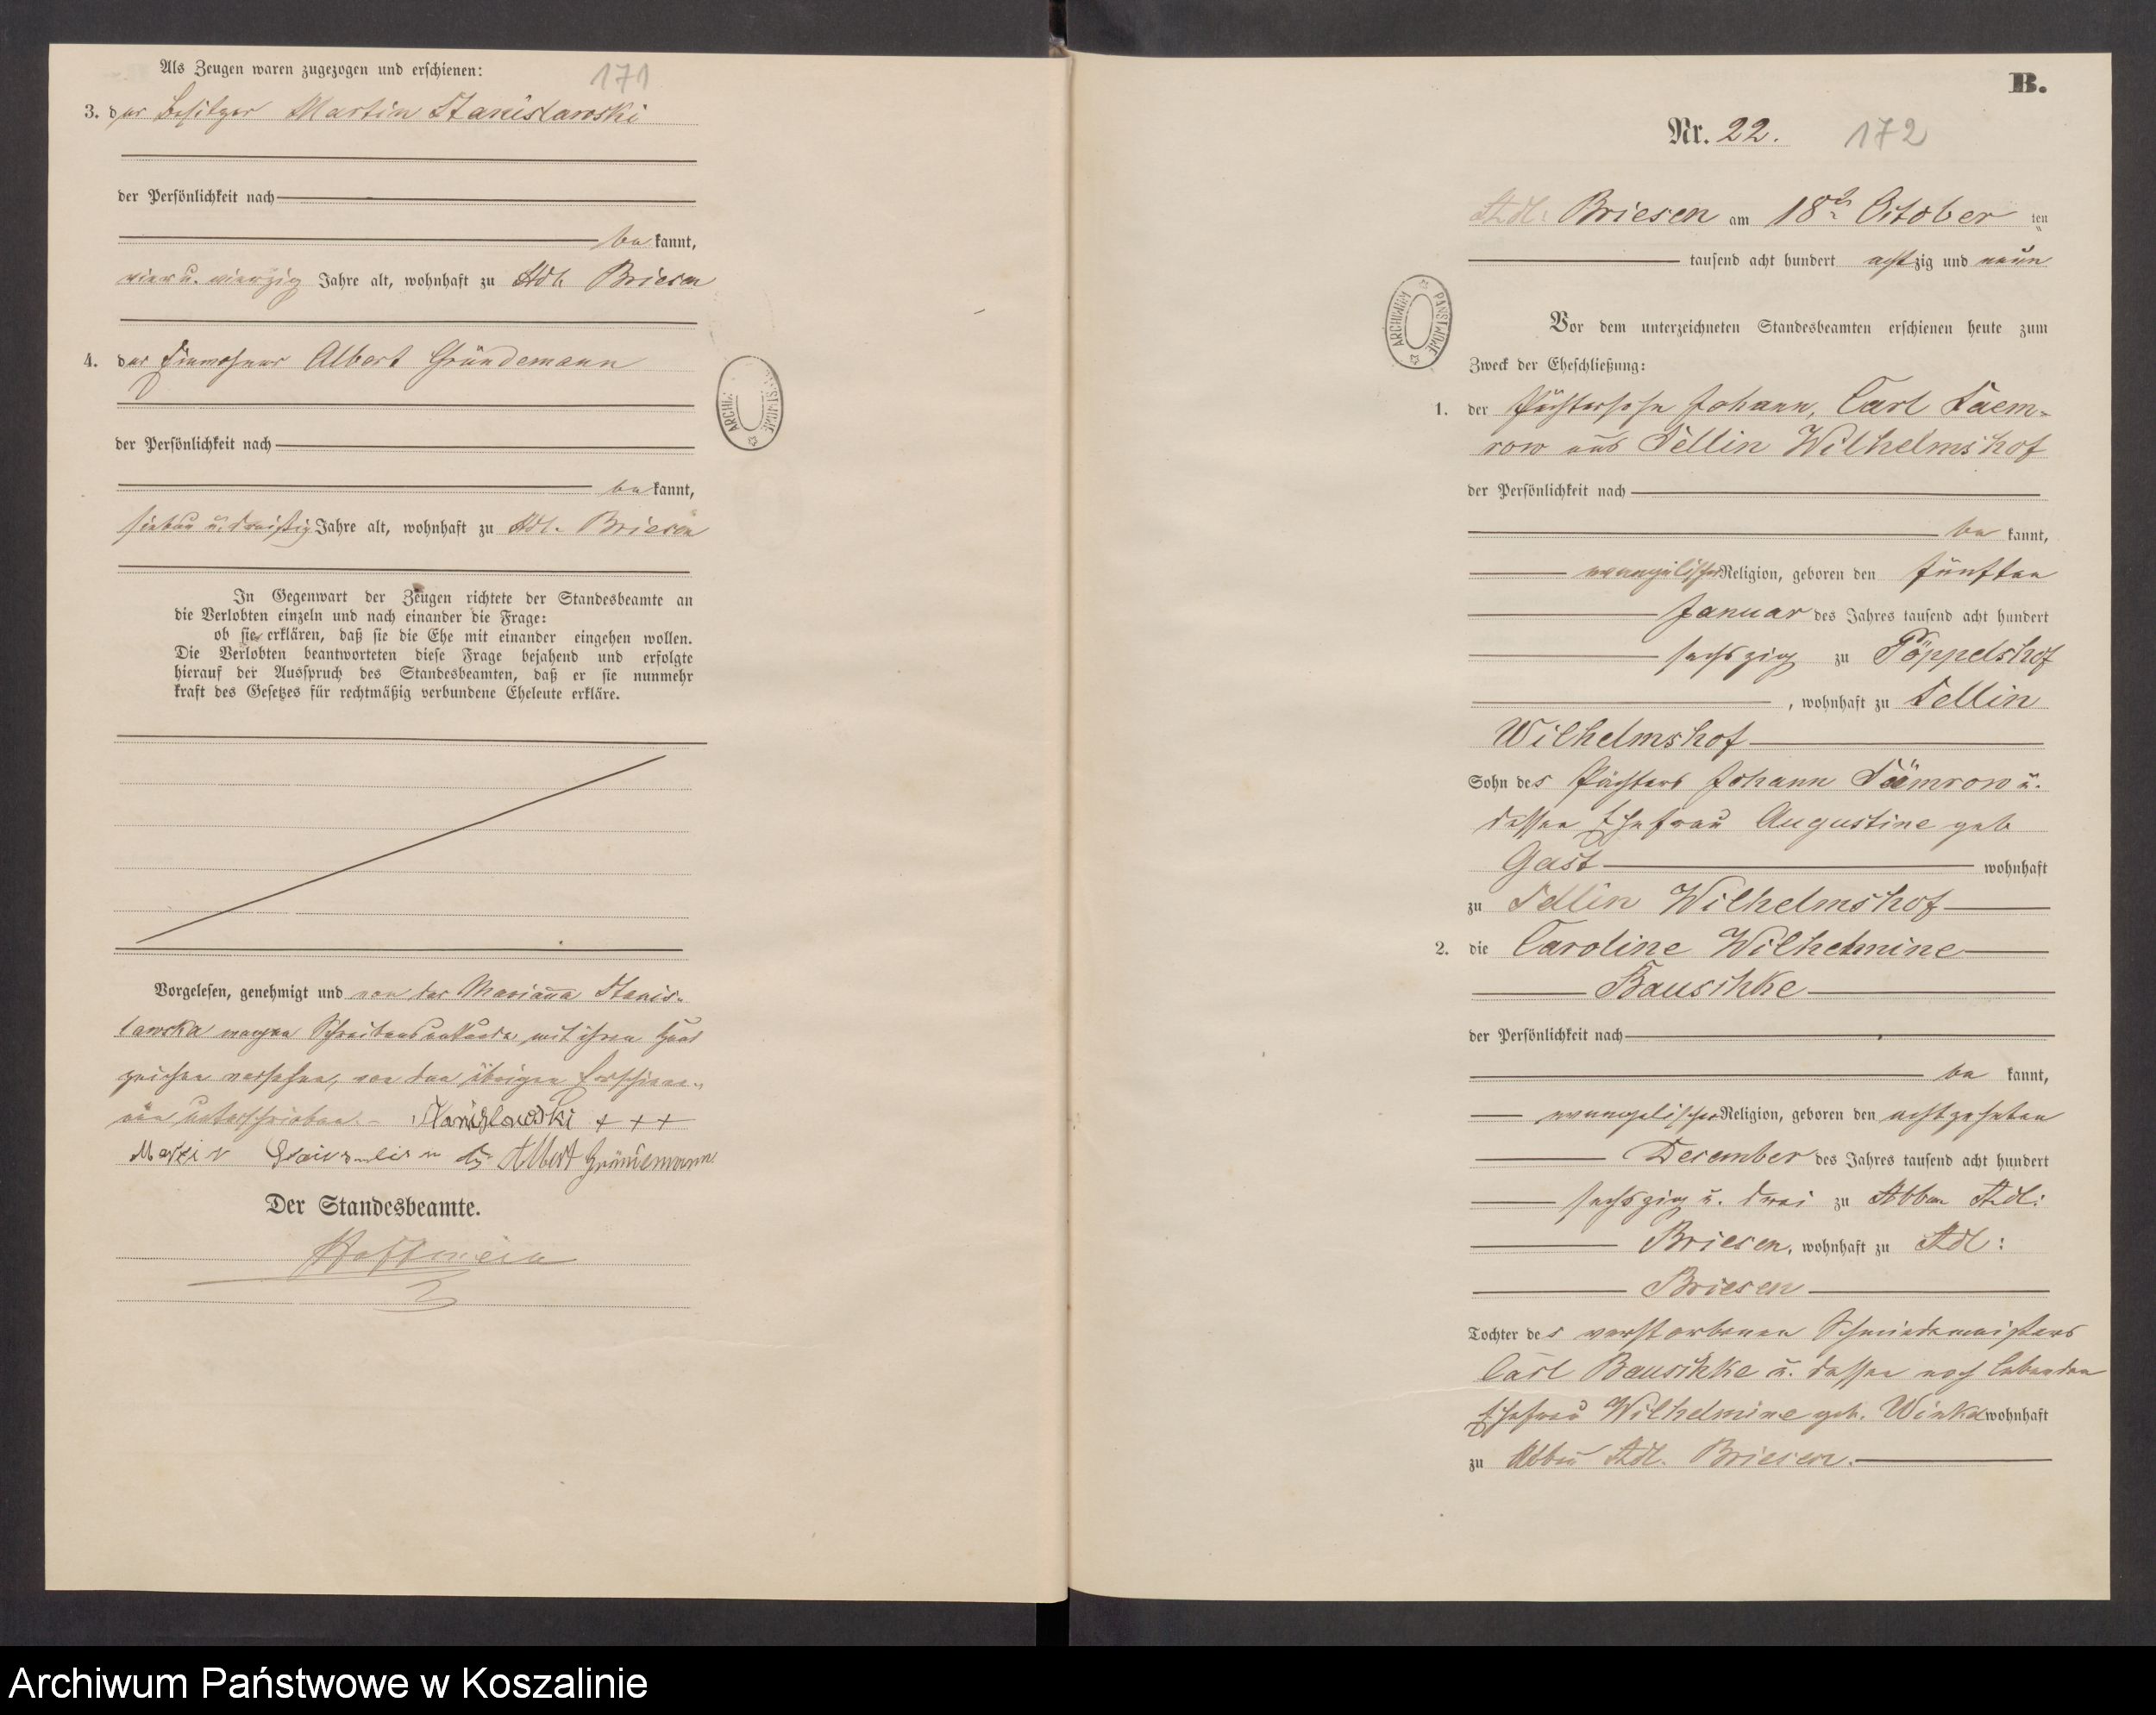 Als Zeugen waren zugezogen und erschienen:
171
3. der Besitzer Martin Stanislawski
der Persönlichkeit nach
bekannt,
vier u. vierzig Jahre alt, wohnhaft zu Adl. Briesen
4. der Einwohner Albert Gründemann
der Persönlichkeit nach
bekannt,
sieben u. dreißig Jahre alt, wohnhaft zu Adl. Briesen
In Gegenwart der Zeugen richtete der Standesbeamte an
die Verlobten einzeln und nach einander die Frage:
ob sie erklären, daß sie die Ehe mit einander eingehen wollen.
Die Verlobten beantworteten diese Frage bejahend und erfolgte
hierauf der Ausspruch des Standesbeamten, daß er sie nunmehr
kraft des Gesetzes für rechtmäßig verbundene Eheleute erkläre.
Vorgelesen, genehmigt und von der Marianna Stanis-
lawska wegen Schreibensunkunde mit ihren Hand
zeichen versehen, von den übrigen Erschiene-
nen unterschrieben. – Stanislawski + + +
Albert Gründemann
Der Standesbeamte.
B.
Nr. 22.
172
Adl: Briesen am 18ten October ten
tausend acht hundert achtzig und neun
Vor dem unterzeichneten Standesbeamten erschienen heute zum
Zweck der Eheschließung:
1. der Pächtersohn Johann, Carl Taem-
row aus Sellin Wilhelmshof
der Persönlichkeit nach
bekannt,
evangelischer Religion, geboren den fünften
Januar des Jahres tausend acht hundert
sechszig zu Pöppelshof
, wohnhaft zu Sellin
Wilhelmshof
Sohn des Pächters Johann Tämrow u.
dessen Ehefrau Augustine geb
Gast wohnhaft
zu Sellin Wilhelmshof
2. die Caroline Wilhelmine
Bauschke
der Persönlichkeit nach
bekannt,
evangelischer Religion, geboren den achtzehnten
December des Jahres tausend acht hundert
sechszig u. drei zu Abbau Adl:
Briesen, wohnhaft zu Adl:
Briesen
Tochter des verstorbenen Schmiedemeisters
Carl Bauschke u. dessen noch lebenden
Ehefrau Wilhelmine geb. Winkel wohnhaft
zu Abbau Adl. Briesen.
ARCHIWUM PAŃSTWOWE
Archiwum Państwowe w Koszalinie